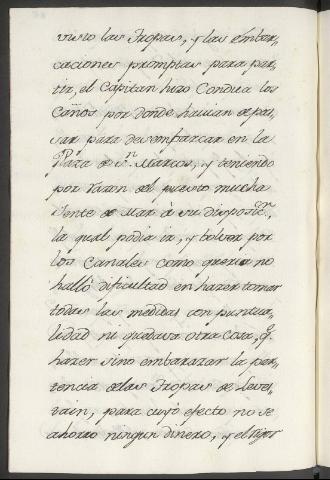 visto las Tropas, y las embar-
caciones promptas para par-
tir, el Capitan hizo Condux los
Caños por donde havian de pa-
sar para desembarcar en la
Plaza de Sn. Marcos, y teniendo
por razon del puesto mucha
Jente de Mar à su disposicon.,
la qual podia ir, y bolver por
los Canales como queria no
hallò dificultad en hazer tomar
todas las medidas con puntua-
lidad ni quedava otra cosa, q.
hazer sino embarazar la per-
tencia de las Tropas de
para cuyo efecto no se
ahorro ningun dinero, y el